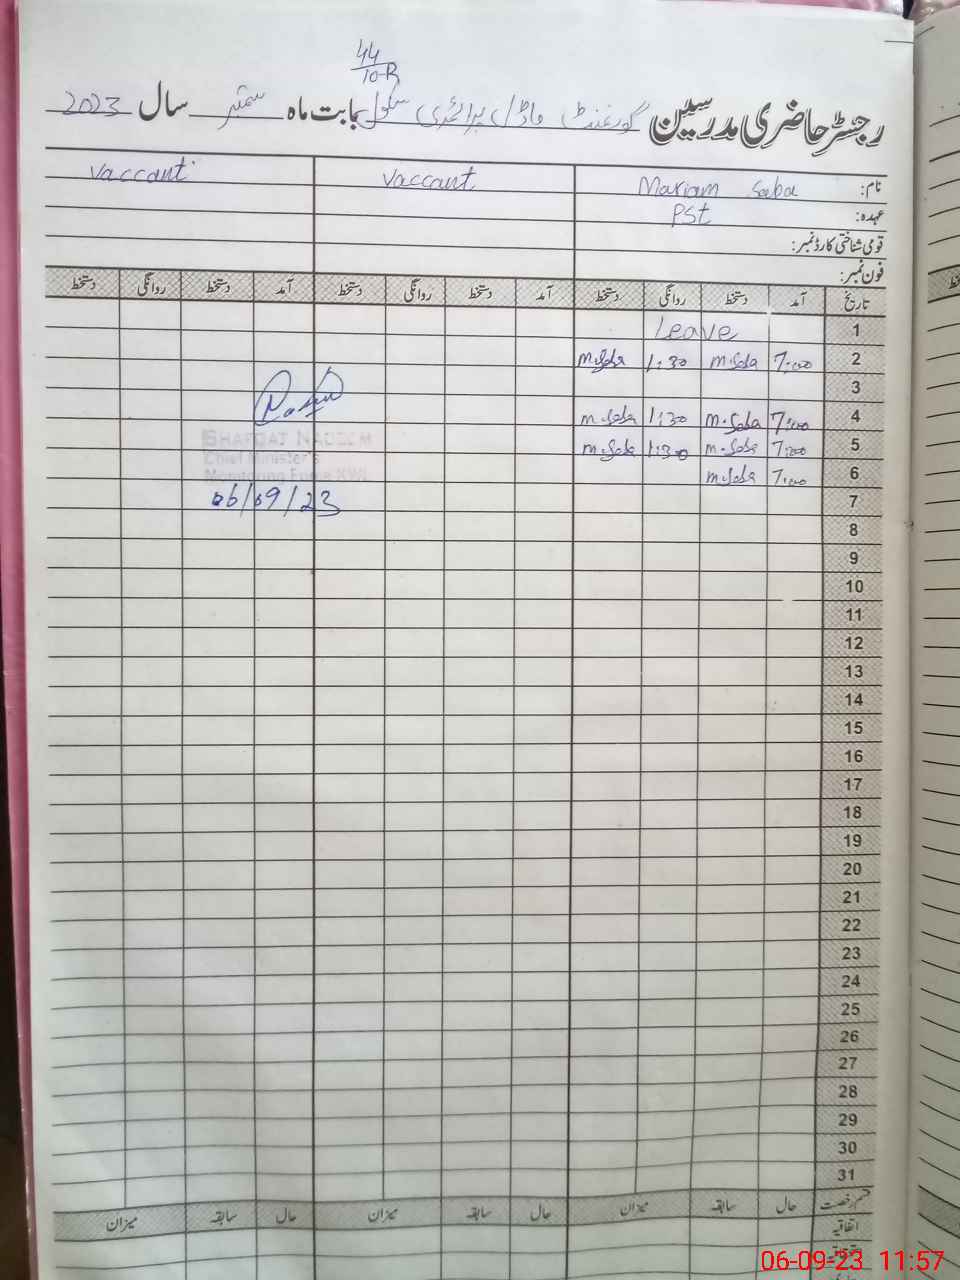 44
10-R
رجسٹر حاضری مدرسین گورنمنٹ ماڈل پرائمری سکول بابت ماہ ستمبر سال 2023
نام: Mariam Saba vaccant vaccant
عہدہ: PST
قومی شناختی کارڈ نمبر:
فون نمبر:
تاریخ آمد دستخط روانگی دستخط آمد دستخط روانگی دستخط آمد دستخط روانگی دستخط
1 Leave
2 7:00 m.Saba 1:30 m.Saba
3
4 7:00 m.Saba 1:30 m.Saba
5 7:00 m.Saba 1:30 m.Saba
6 7:00 m.Saba
SHAFQAT NADEEM
Chief Minister's
Monitoring Force KWL
06/09/23
7
8
9
10
11
12
13
14
15
16
17
18
19
20
21
22
23
24
25
26
27
28
29
30
31
قسم رخصت حال سابقہ میزان حال سابقہ میزان حال سابقہ میزان
اتفاقیہ
06-09-23 11:57